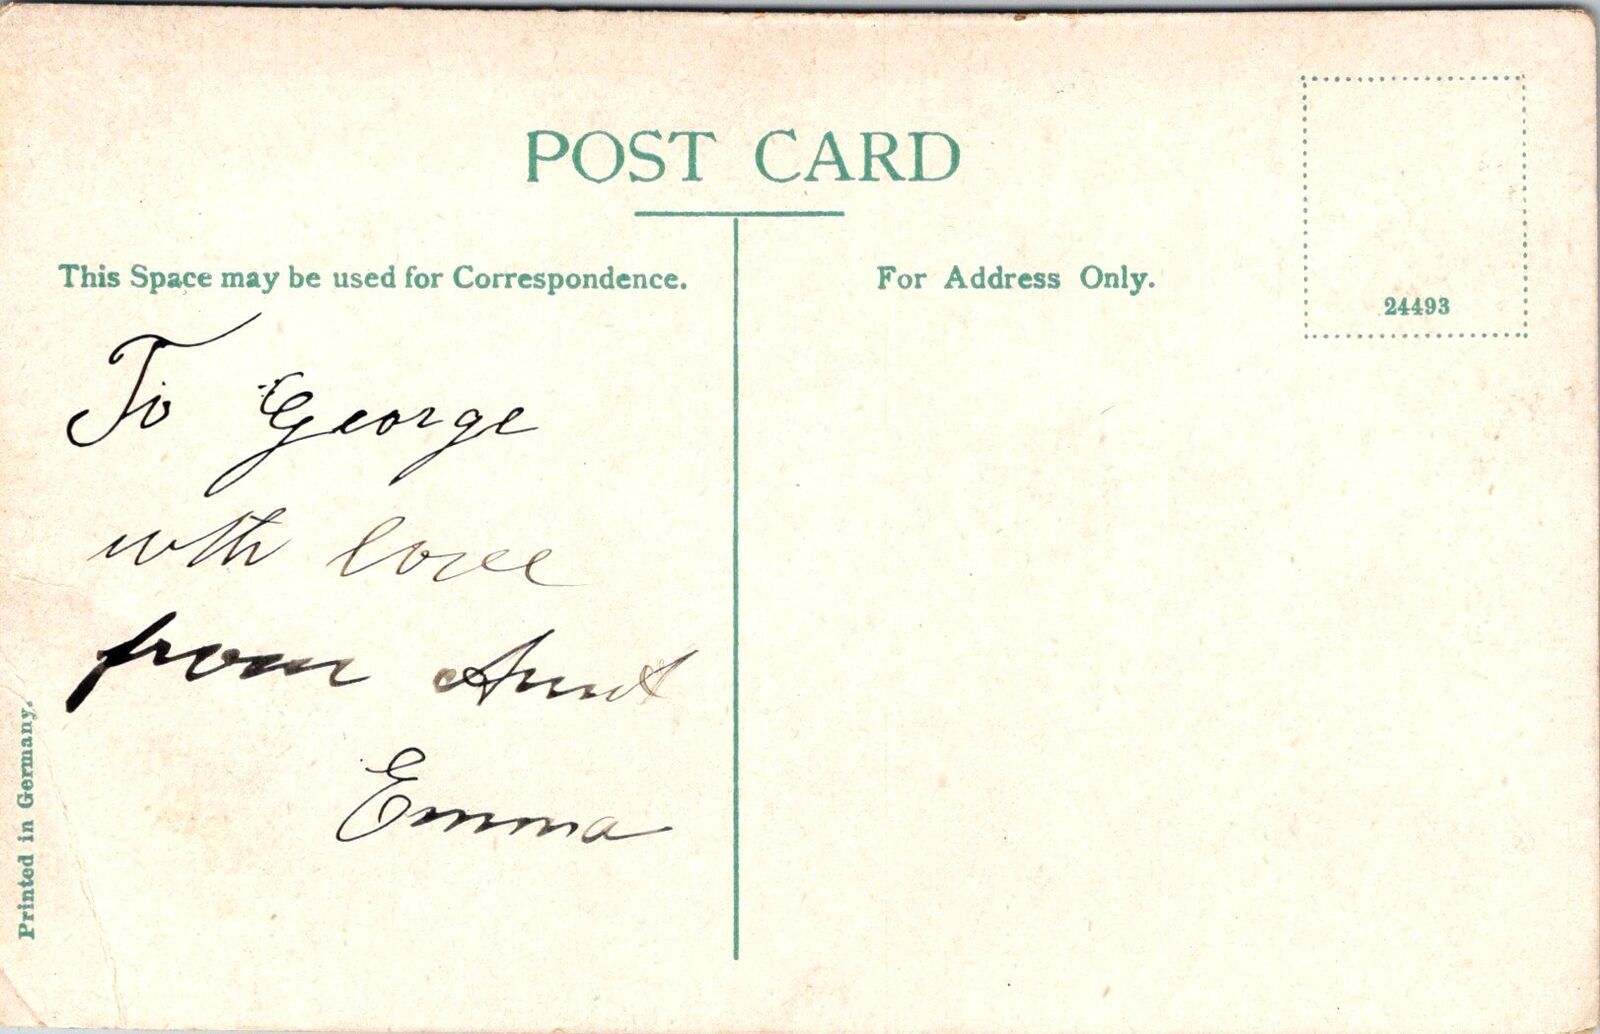 POST CARD
This Space may be used for Correspondence.
For Address Only.
24493
To George
with love
from Aunt
Emma
Printed in Germany.